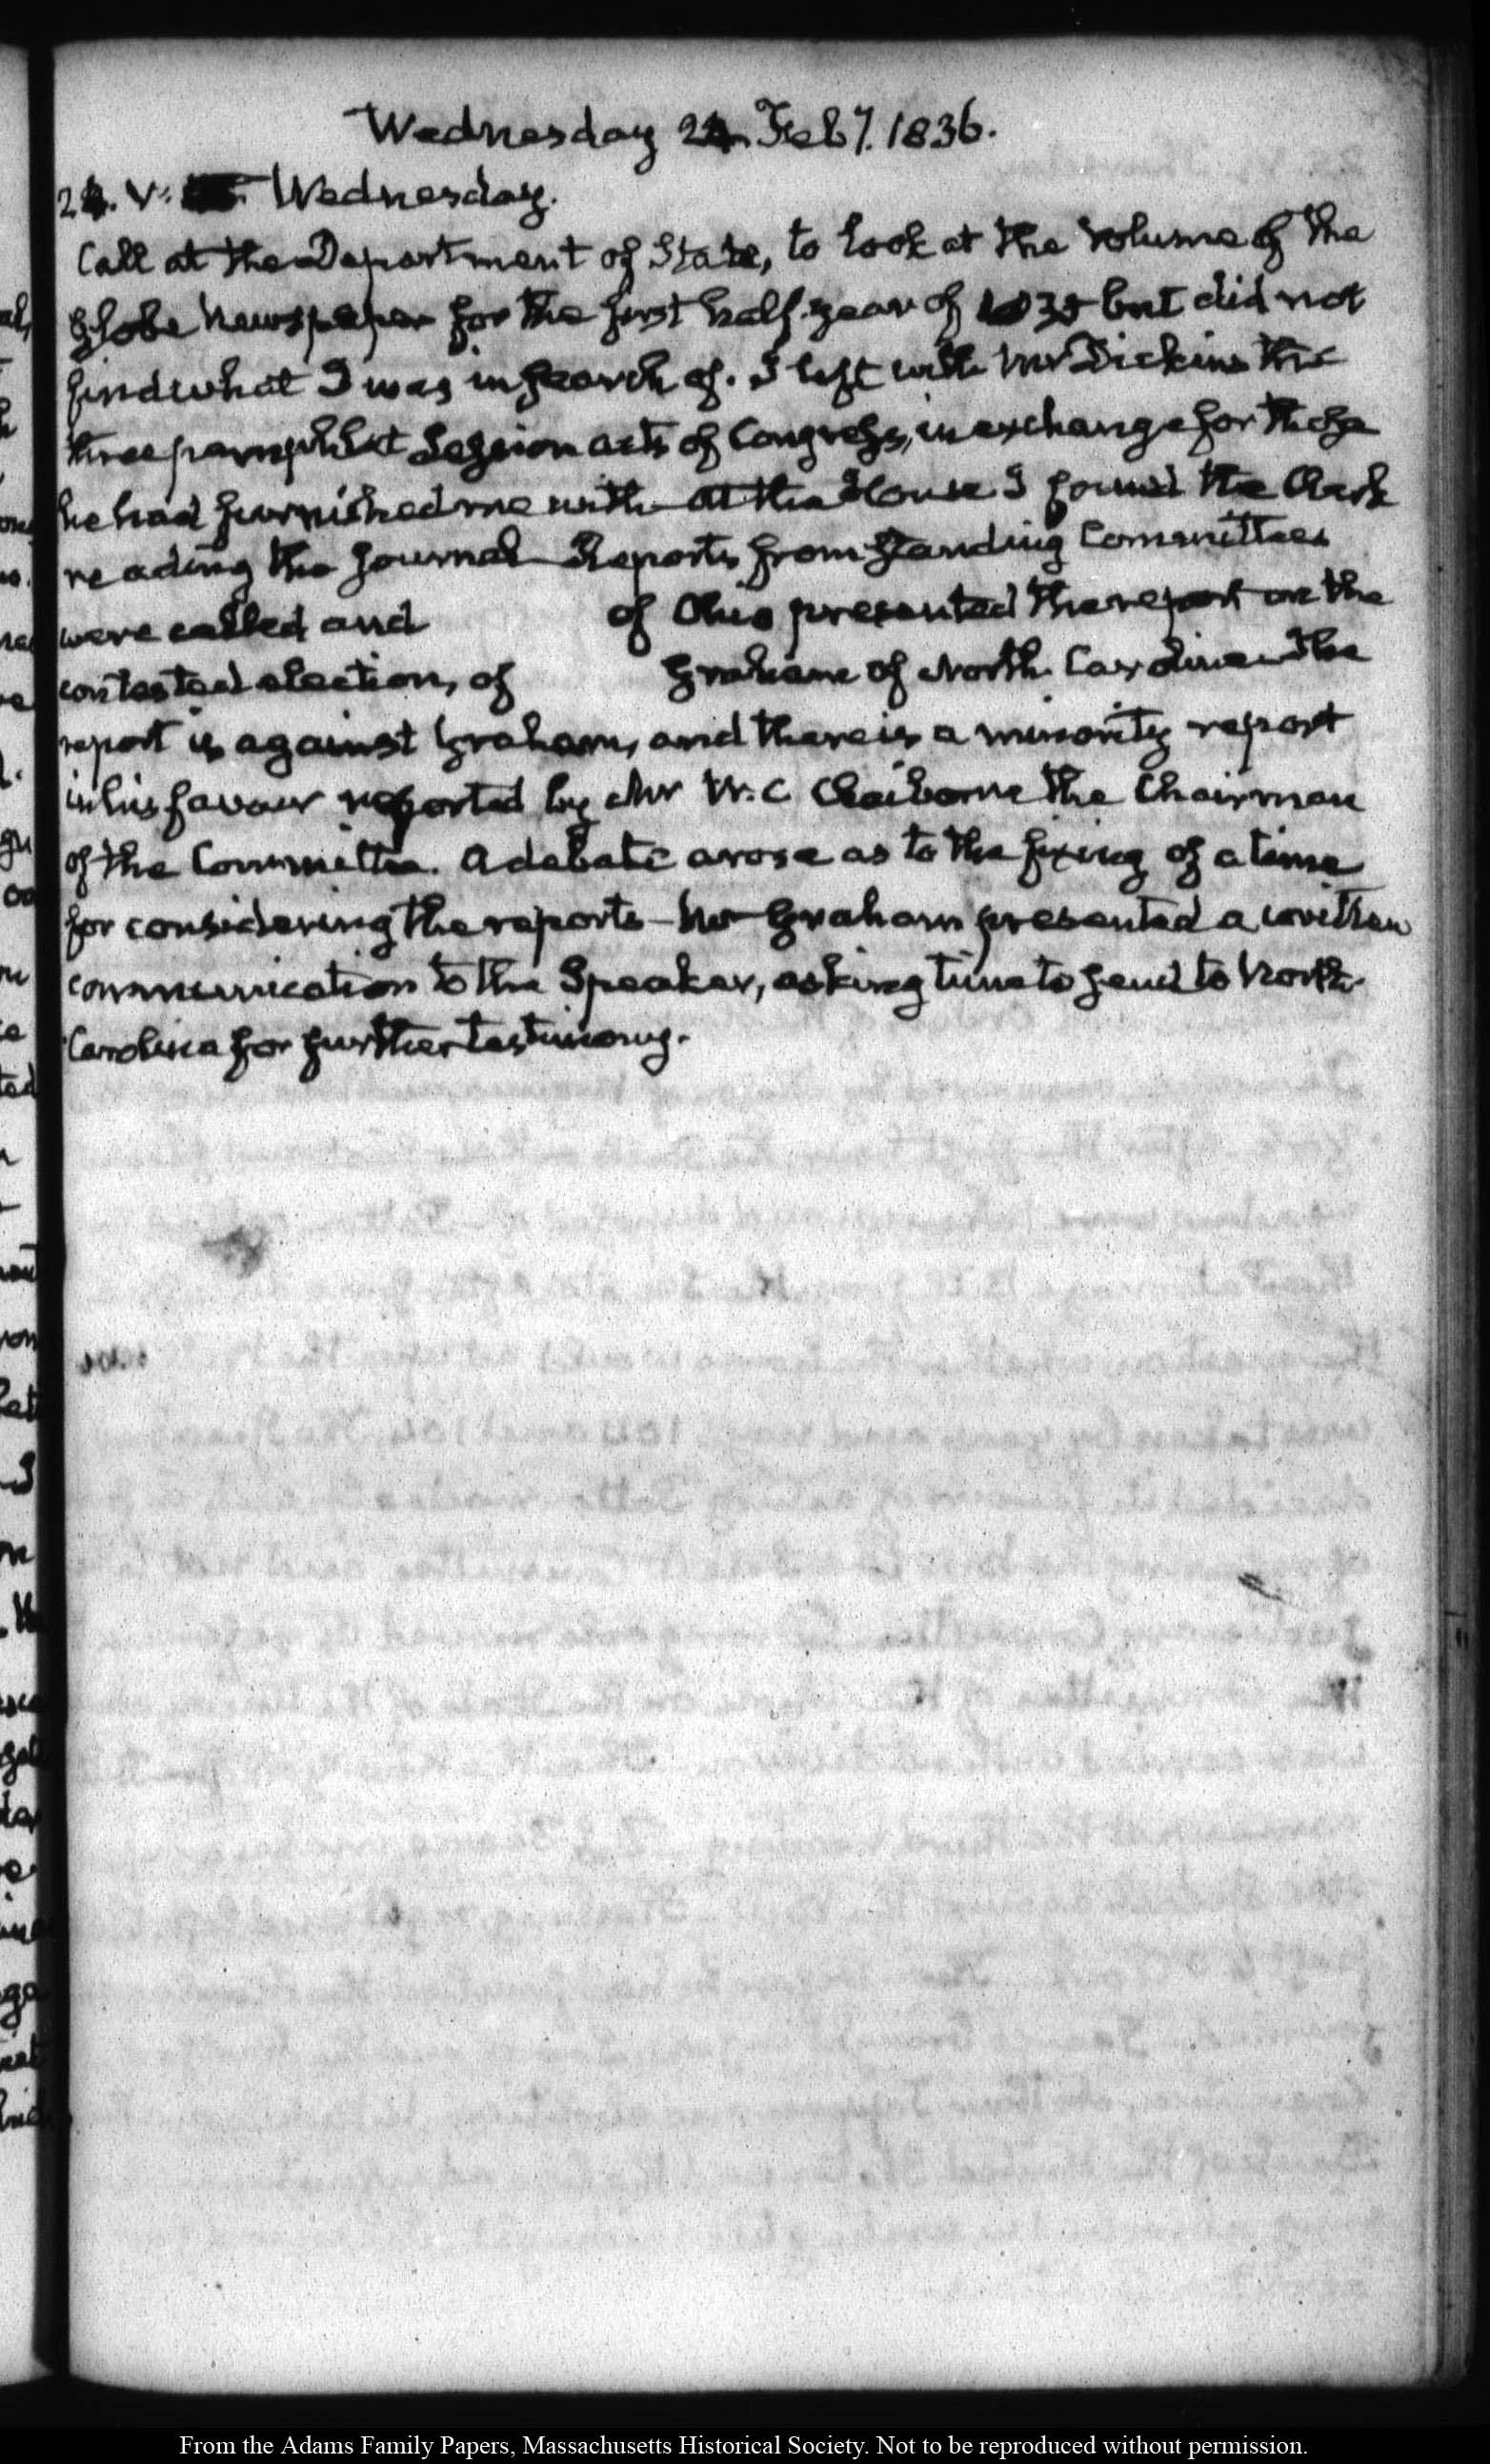 Wednesday 24. Feby. 1836.
24. V. Wednesday.
Call at the Department of State, to look at the volume of the
Globe Newspaper for the first half-year of 1835 but did not
find what I was in search of. I left with Mr Dickins the
three pamphlet Session acts of Congress, in exchange for those
he had furnished me with— At the House I found the Clerk
reading the Journal— Reports from Standing Committees
were called and of Ohio presented the report on the
contested election, of Graham of North Carolina— The
report is against Graham, and there is a minority report
in his favour reported by Mr N. C Claiborne the Chairman
of the Committee. A debate arose as to the fixing of a time
for considering the reports— Mr Graham presented a written
communication to the Speaker, asking time to send to North-
Carolina for further testimony.
From the Adams Family Papers, Massachusetts Historical Society. Not to be reproduced without permission.